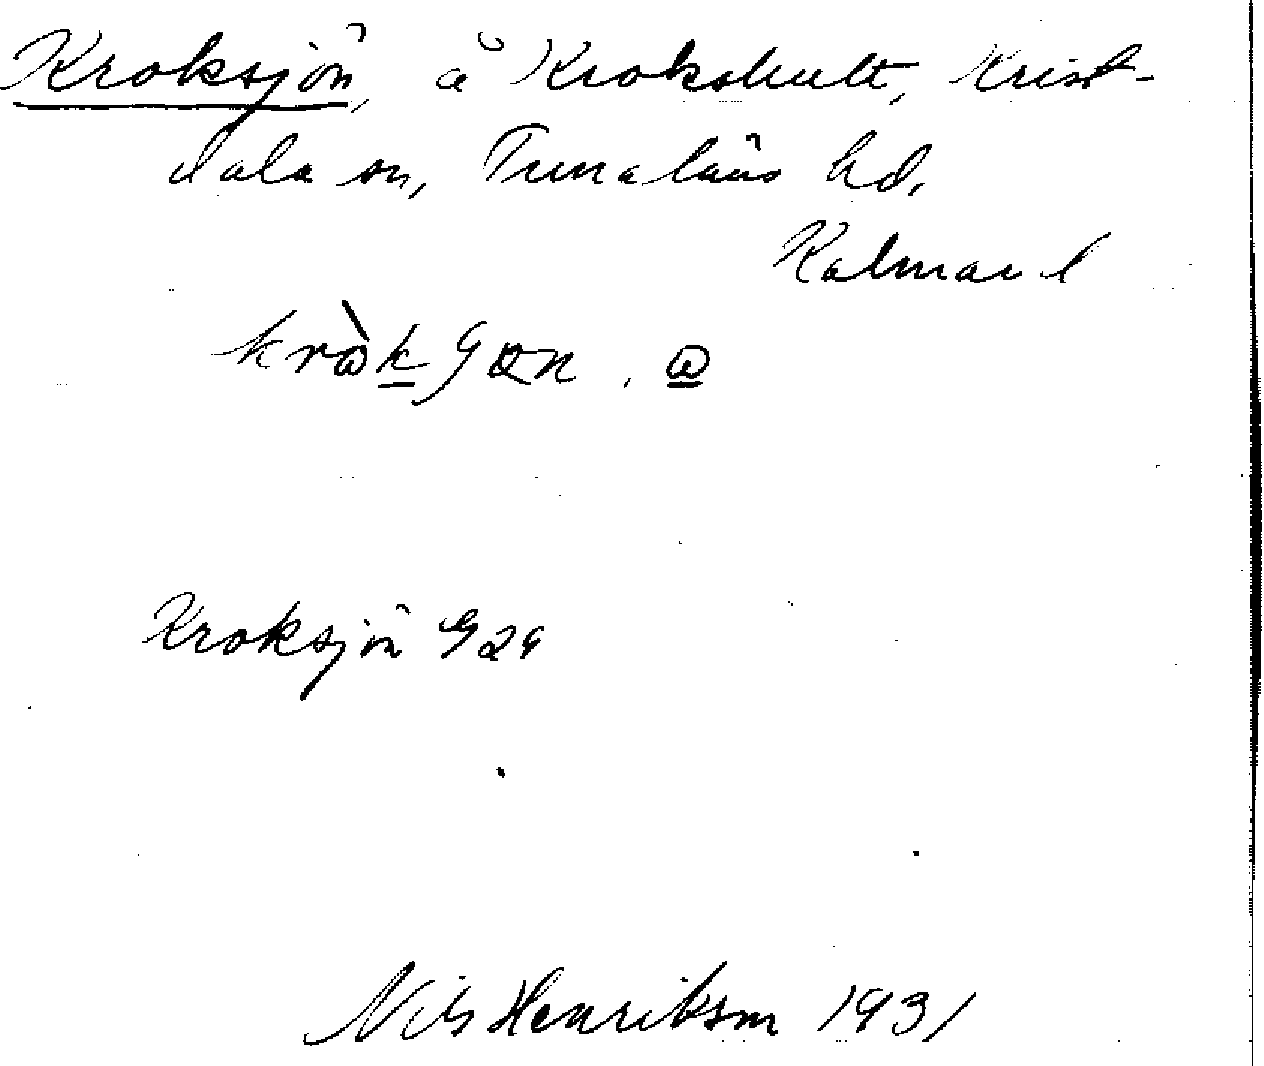 Kroksjön, å Krokshult, Krist-
dala sn, Tunaläns hd.
Kalmar l
Kroksjön
Nils Henrikson 1931